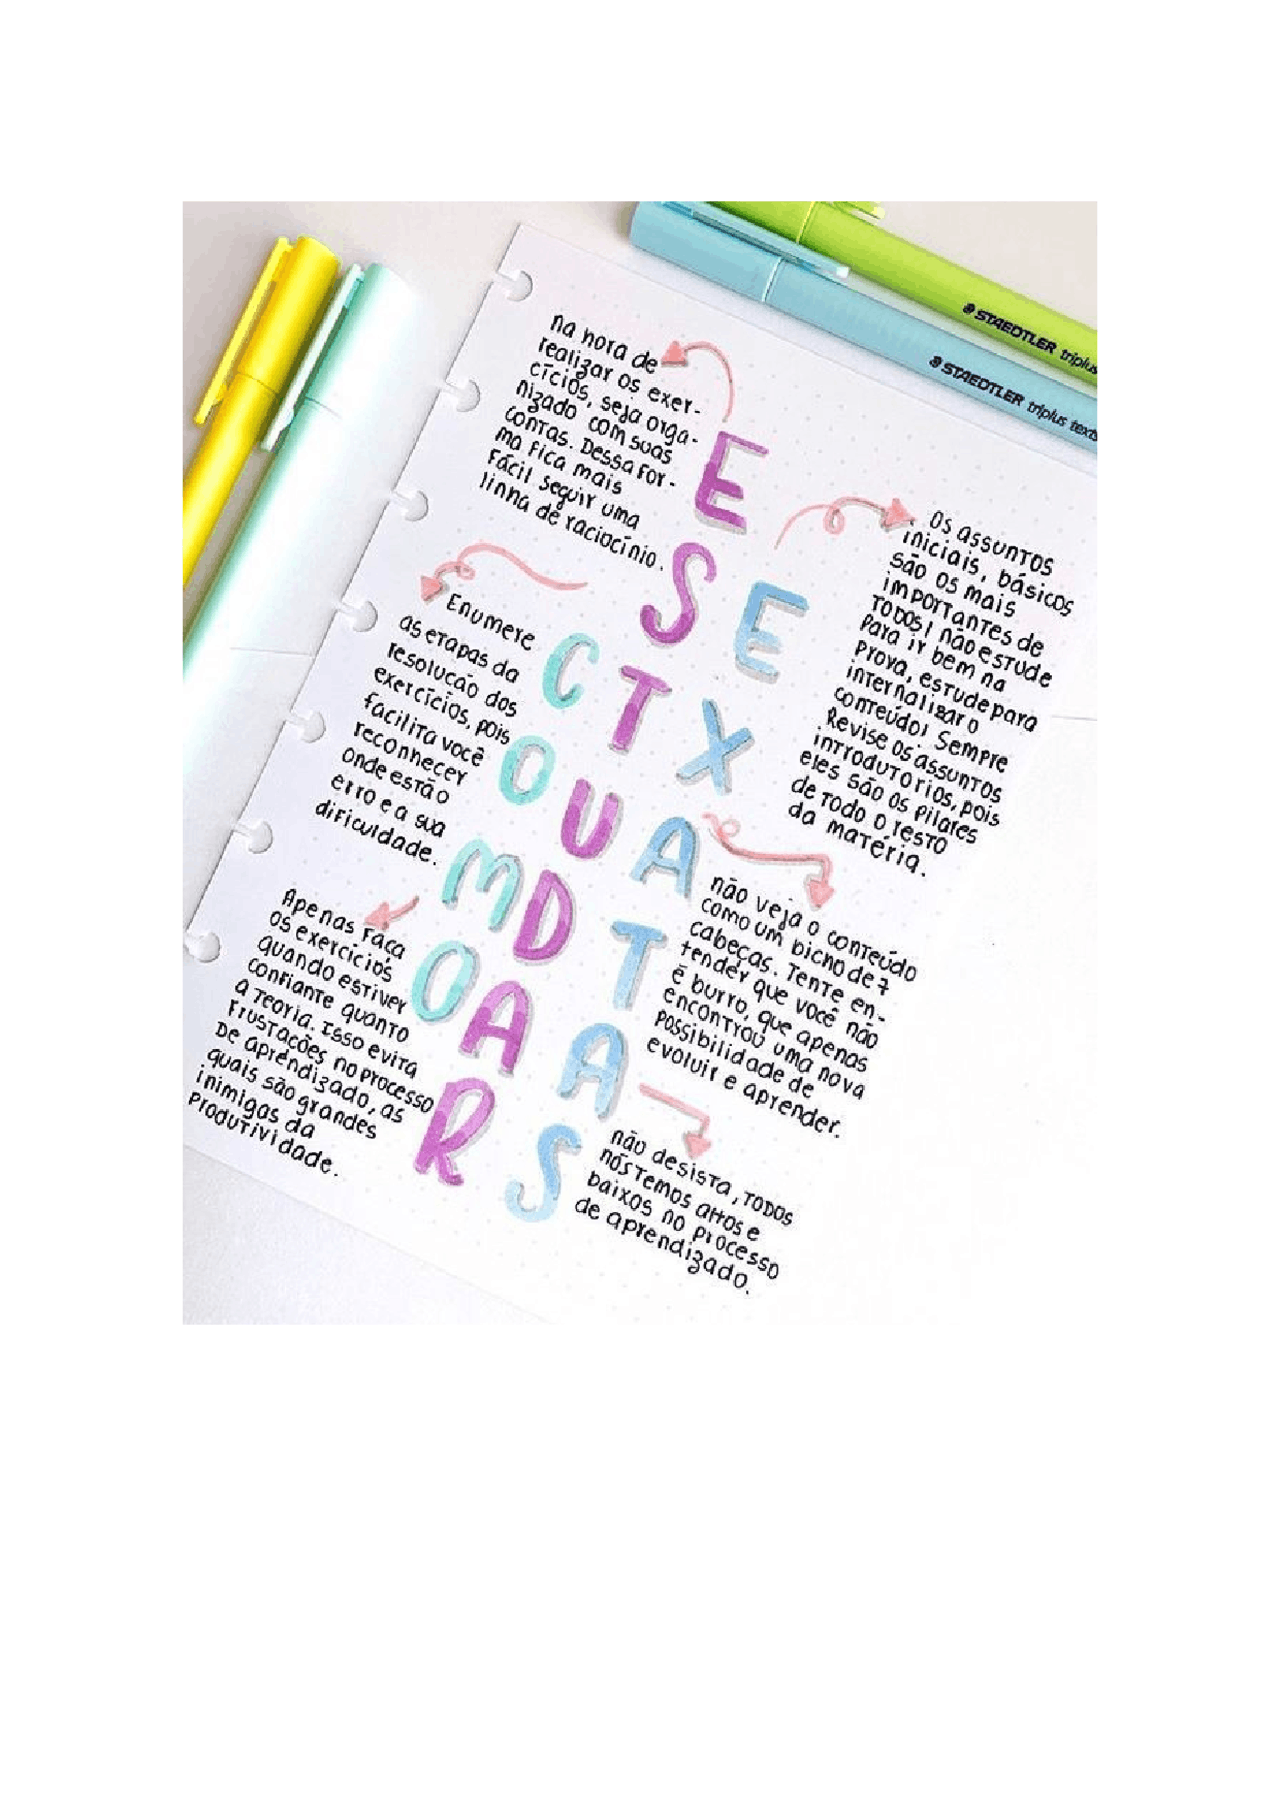 STAEDTLER triplus
STAEDTLER triplus text
COMO
ESTUDAR
EXATAS
na hora de
realizar os exer-
cícios, seja orga-
nizado com suas
contas. Dessa for-
ma fica mais
fácil seguir uma
linha de raciocínio.
Enumere
as etapas da
resolucão dos
exercícios, pois
facilita você
reconhecer
onde estão
erro e a sua
dificuldade.
Apenas faça
os exercícios
quando estiver
confiante quanto
à teoria. Isso evita
frustacões no processo
De aprendizado, as
quais são grandes
inimigas da
produtividade.
Os assuntos
iniciais, básicos
são os mais
importantes de
todos! não estude
para ir bem na
prova, estude para
internalizar o
conteúdo! Sempre
Revise os assuntos
introdutorios, pois
eles são os pilares
de todo o resto
da matéria.
não veja o conteúdo
como um bicho de 7
cabeças. Tente en-
tender que você não
é burro, que apenas
encontrou uma nova
possibilidade de
evoluir e aprender.
não desista, todos
nós temos altos e
baixos no processo
de aprendizado.